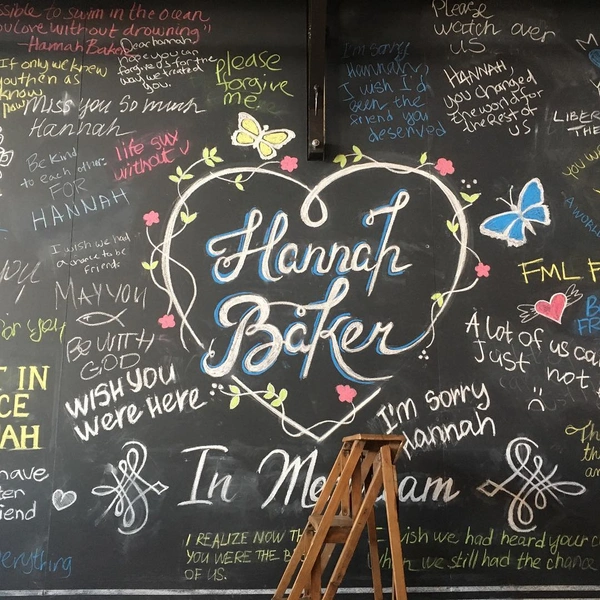 ssible to swim in the ocean
ou love without drowning"
-Hannah Baker
If only we knew
you then as
know
now
Dear hannah
hope you can
forgive us for the
way we treated
you.
please
forgive
me
Miss you So much
Hannah
Be Kind
to each other
FOR
HANNAH
life sux
without u
I'm sorry
Hannah,
I wish I'd
been the
friend you
deserved
Please
watch over
US
HANNAH
you changed
the world for
the Rest of
US
M
LIBER
THE
you w
A WORL
I wish we had
a chance to be
friends
you
MAY YOU
BE WITH
GOD
for you
Hannah
Baker
FML F
B
FR
A lot of us ca
Just not
T IN
CE
AH
WISH YOU
were HERE
I'm sorry
Hannah
In Me am
have
ter
iend
Th
th
an
I REALIZE NOW TH
YOU WERE THE B
OF US.
wish we had heard your c
we still had the chance
everything